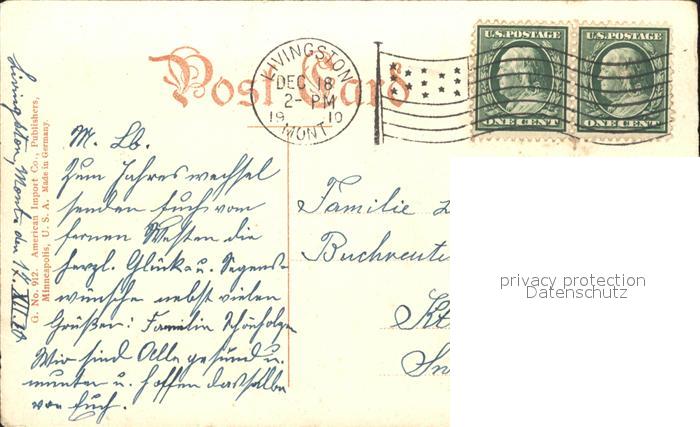 Post Card
LIVINGSTON
DEC 18
2-PM
19 10
MONT
U.S. POSTAGE
ONE CENT
U.S. POSTAGE
ONE CENT
Livingston, Mont. den 17. XII.
G. No. 912. American Import Co., Publishers,
Minneapolis, U. S. A. Made in Germany.
M. Lb.
Zum Jahreswechsel
senden Euch vom
fernen Westen die
herzl. Glück u. Segens-
wünsche nebst vielen
Grüßen: Familie Schönholzer
Wir sind Alle gesund u.
munter u. hoffen dasselbe
von Euch.
Familie
Buchreut
privacy protection
Datenschutz